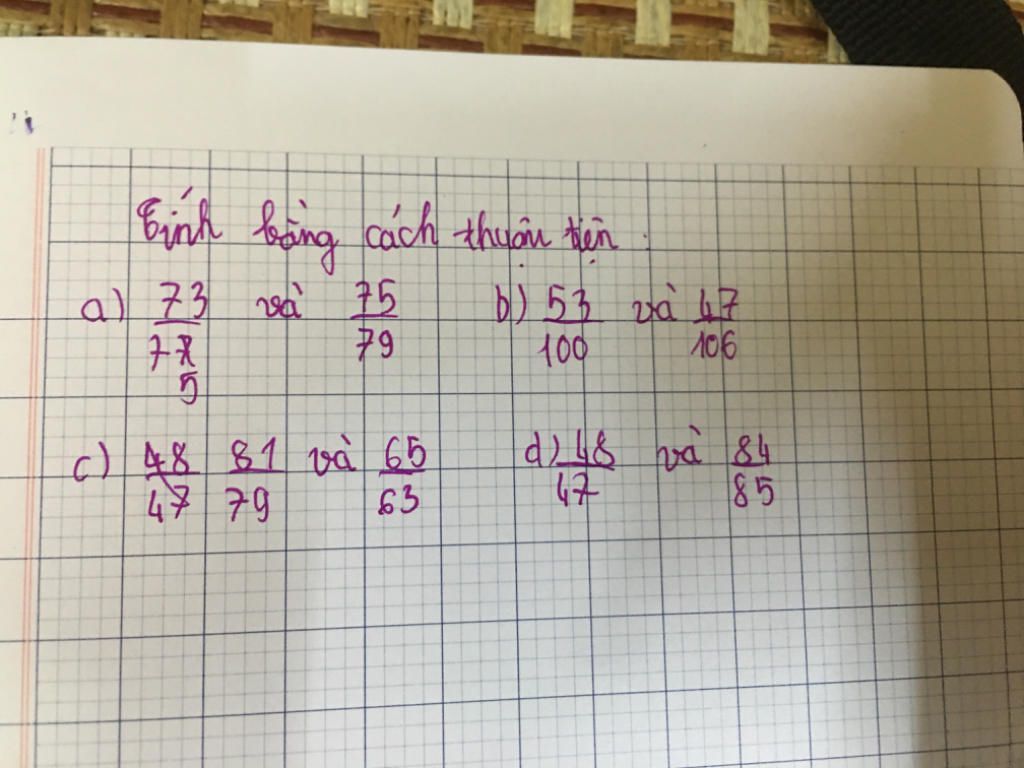 Tính bằng cách thuận tiện.
a) 73/75 và 75/79 b) 53/100 và 47/106
c) 48/47 81/79 và 65/63 d) 48/47 và 84/85